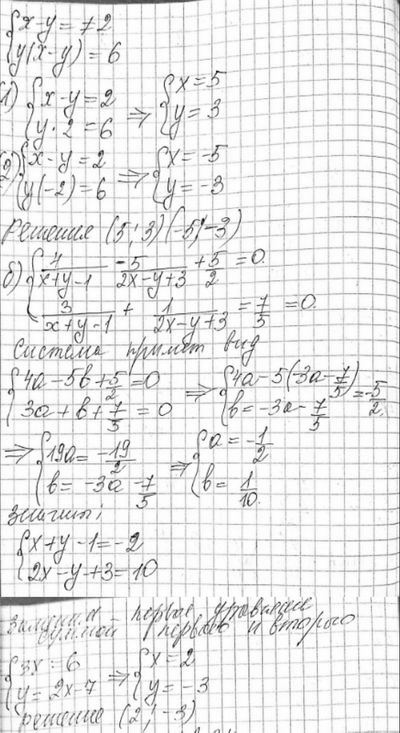 {x-y = ±2
{y(x-y) = 6
1) {x-y=2 ⇒ {x=5
{y·2=6 {y=3
2) {x-y=2 ⇒ {x=-5
{y(-2)=6 {y=-3
Решения (5; 3) (-5; -3)
б) {4/(x+y-1) - 5/(2x-y+3) + 5/2 = 0
{3/(x+y-1) + 1/(2x-y+3) = 7/5 = 0
Система примет вид
{4a-5b+5/2=0 ⇒ {4a-5(-3a-7/5)=-5/2
{3a+b+7/5=0 {b=-3a-7/5
⇒ {19a=-19/2 ⇒ {a=-1/2
{b=-3a-7/5 {b=1/10
значит:
{x+y-1=-2
{2x-y+3=10
заменим первое уравнение
суммой первого и второго
{3x=6 ⇒ {x=2
{y=2x-7 {y=-3
решение (2; -3)